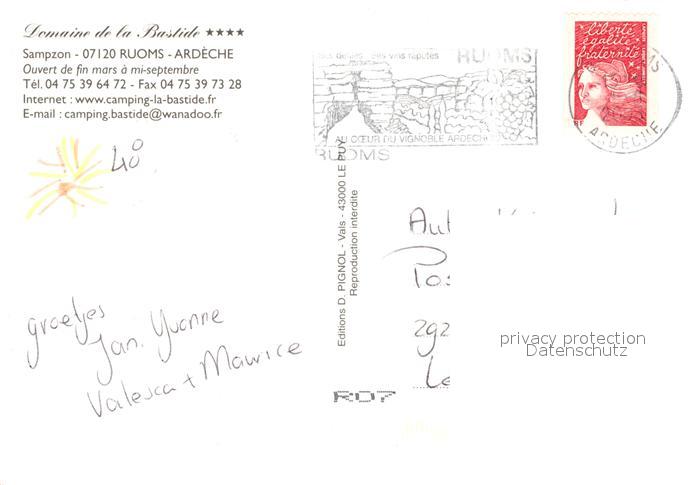 Domaine de la Bastide ★★★★
Sampzon - 07120 RUOMS - ARDÈCHE
Ouvert de fin mars à mi-septembre
Tél. 04 75 39 64 72 - Fax 04 75 39 73 28
Internet : www.camping-la-bastide.fr
E-mail : camping.bastide@wanadoo.fr
40°
groetjes
Jan. Yvonne
Valesca + Maurice
Editions D. PIGNOL - Vals - 43000 LE PUY
Reproduction interdite
des vins réputés
RUOMS
AU CŒUR DU VIGNOBLE ARDECHOIS
RUOMS
liberté
égalité
fraternité
RF
ARDECHE
Aut
Pos
292
Le
RO7
privacy protection
Datenschutz